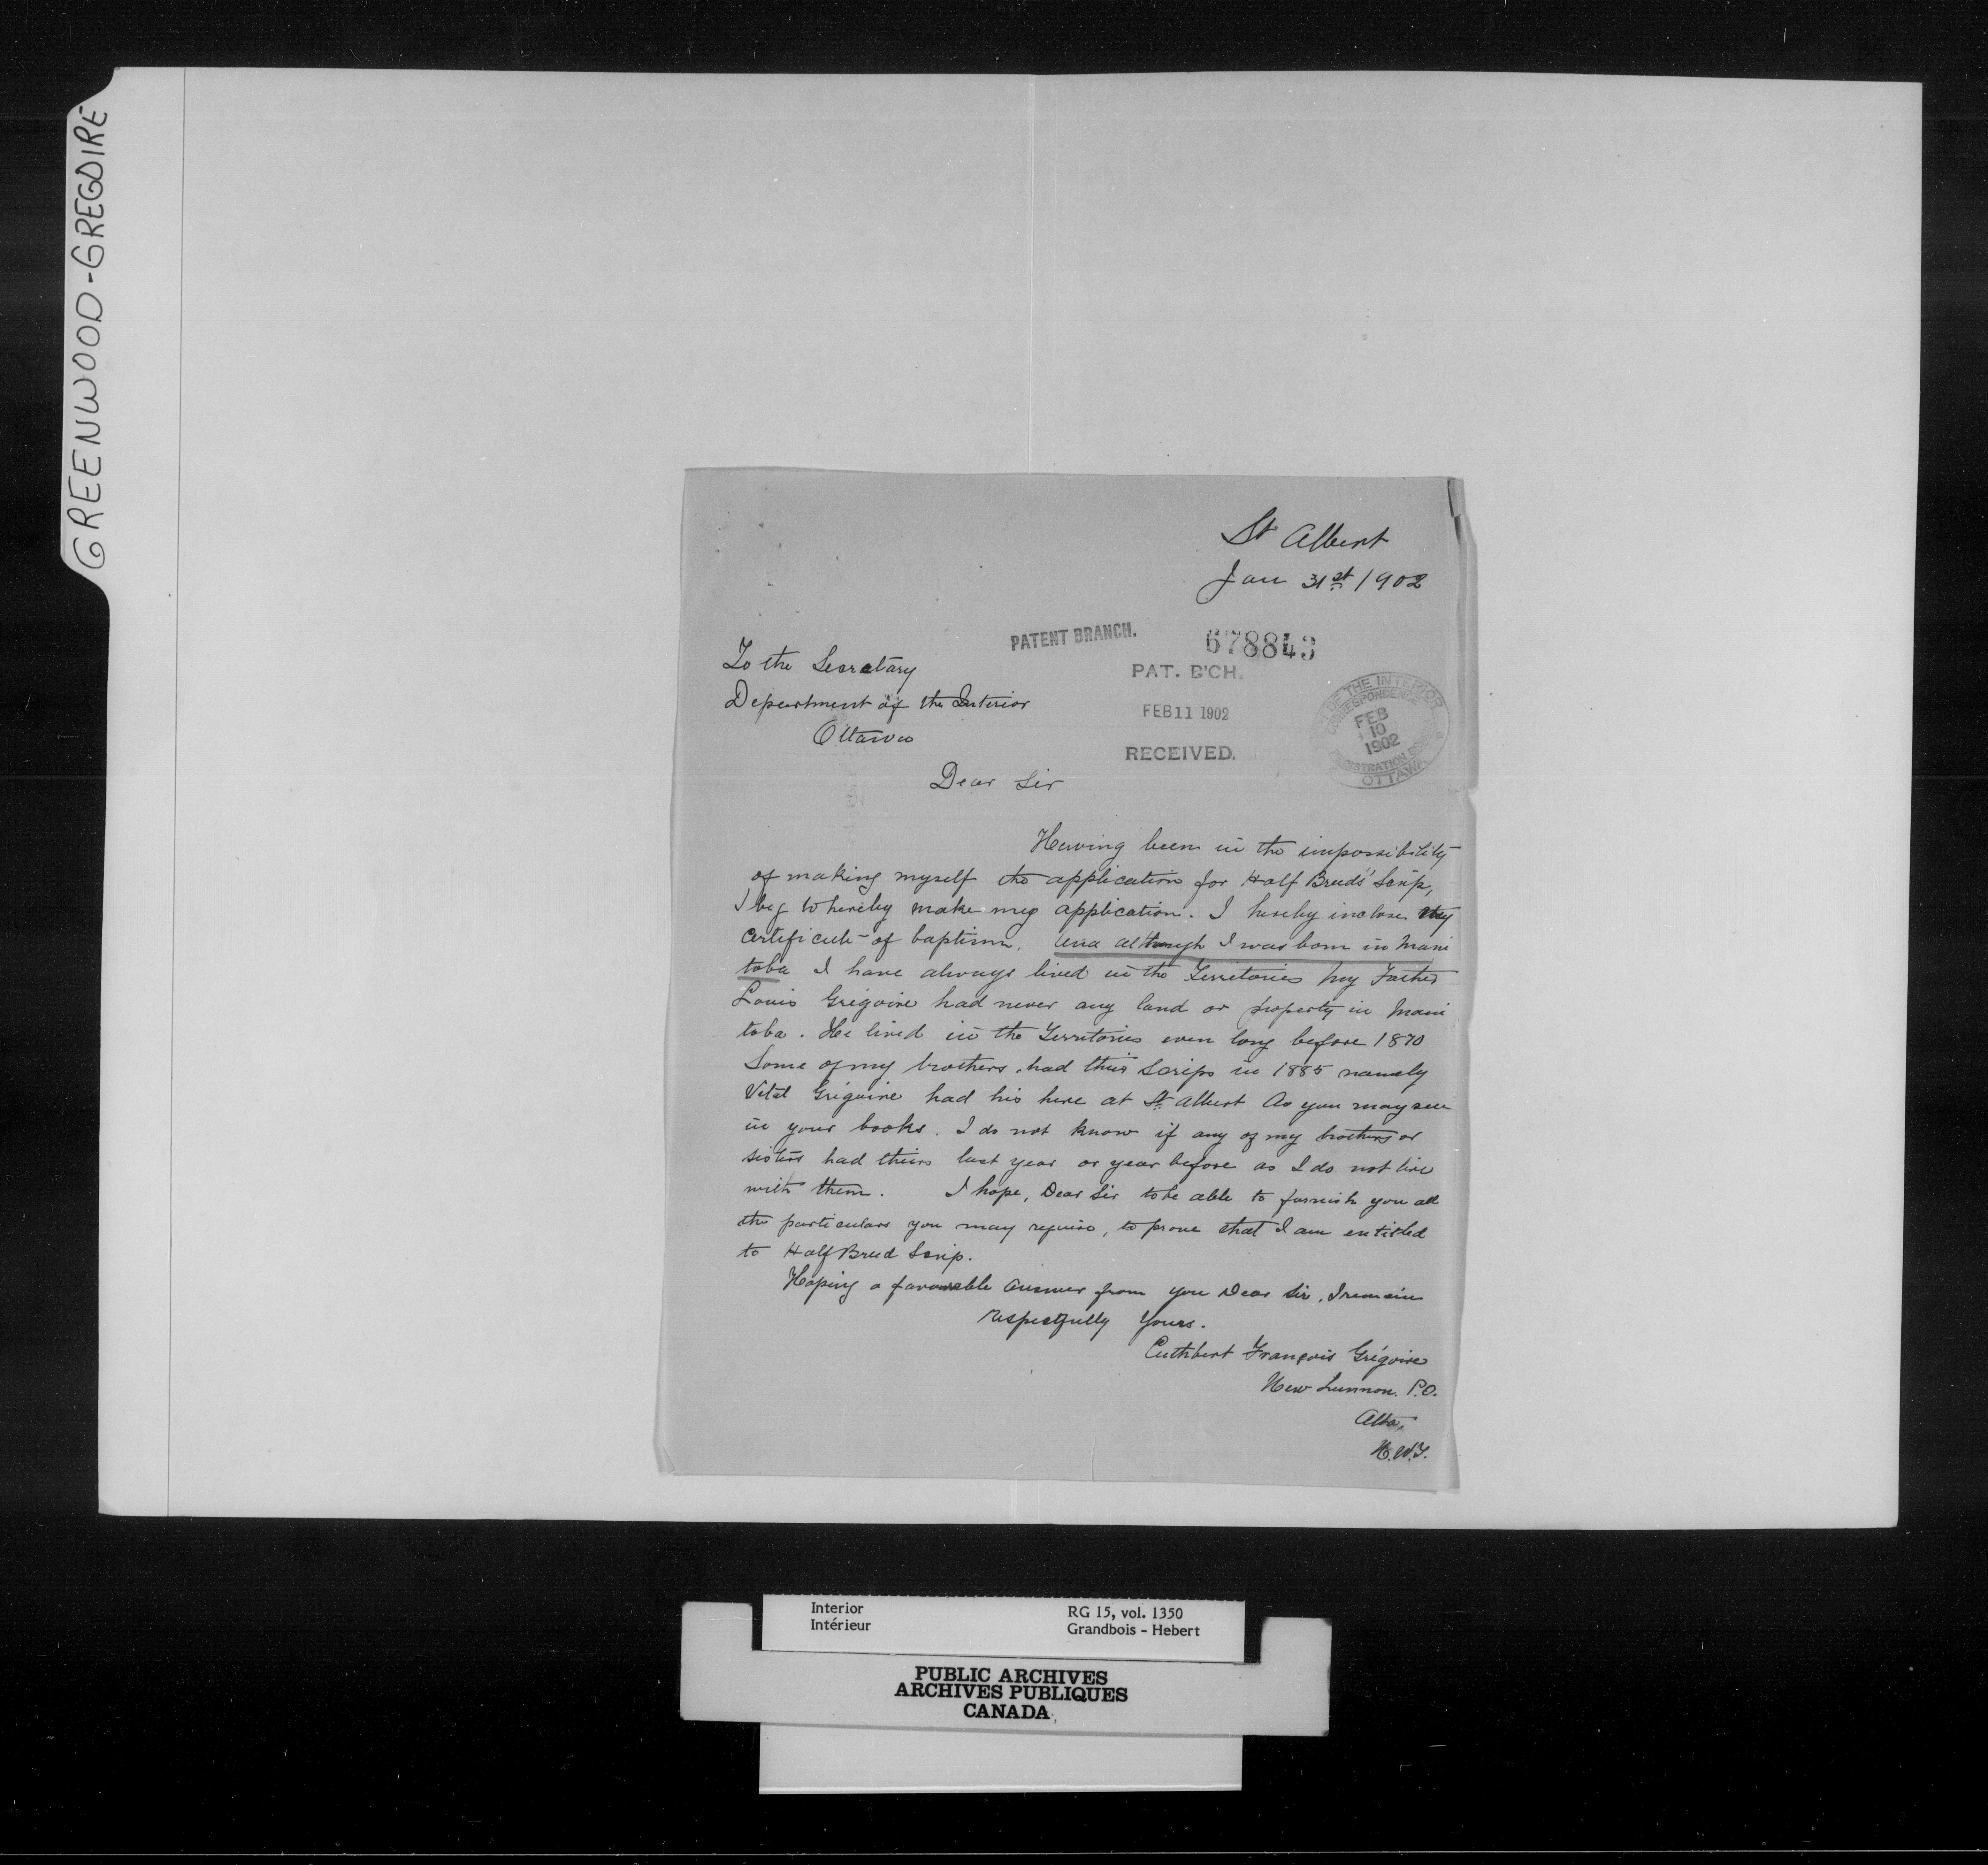 GREENWOOD-GREGOIRE
St Albert
Jan 31st 1902
PATENT BRANCH.
678843
PAT. B'CH.
FEB 11 1902
RECEIVED.
OF THE INTERIOR
CORRESPONDENCE
FEB
10
1902
REGISTRATION
OTTAWA
To the Secratary
Department of the Interior
Ottawa
Dear Sir
Having been in the impossibility
of making myself the application for Half Breeds' Scrip,
I beg to hereby make my application. I hereby inclose my
certificate of baptism. And although I was born in Mani
toba I have always lived in the Territories My Father
Louis Grégoire had never any land or property in Mani
toba. He lived in the Territories even long before 1870
Some of my brothers had their Scrips in 1885 namely
Vital Grégoire had his here at St. Albert As you may see
in your books. I do not know if any of my brothers or
sisters had theirs last year or year before as I do not live
with them. I hope, Dear Sir to be able to furnish you all
the particulars you may require, to prove that I am entitled
to Half Breed Scrip.
Hoping a favourable answer from you Dear Sir, I remain
respectfully Yours.
Cuthbert François Grégoire
New Lunnon. P.O.
Alta,
N.W.T.
Interior
Intérieur
RG 15, vol. 1350
Grandbois - Hebert
PUBLIC ARCHIVES
ARCHIVES PUBLIQUES
CANADA